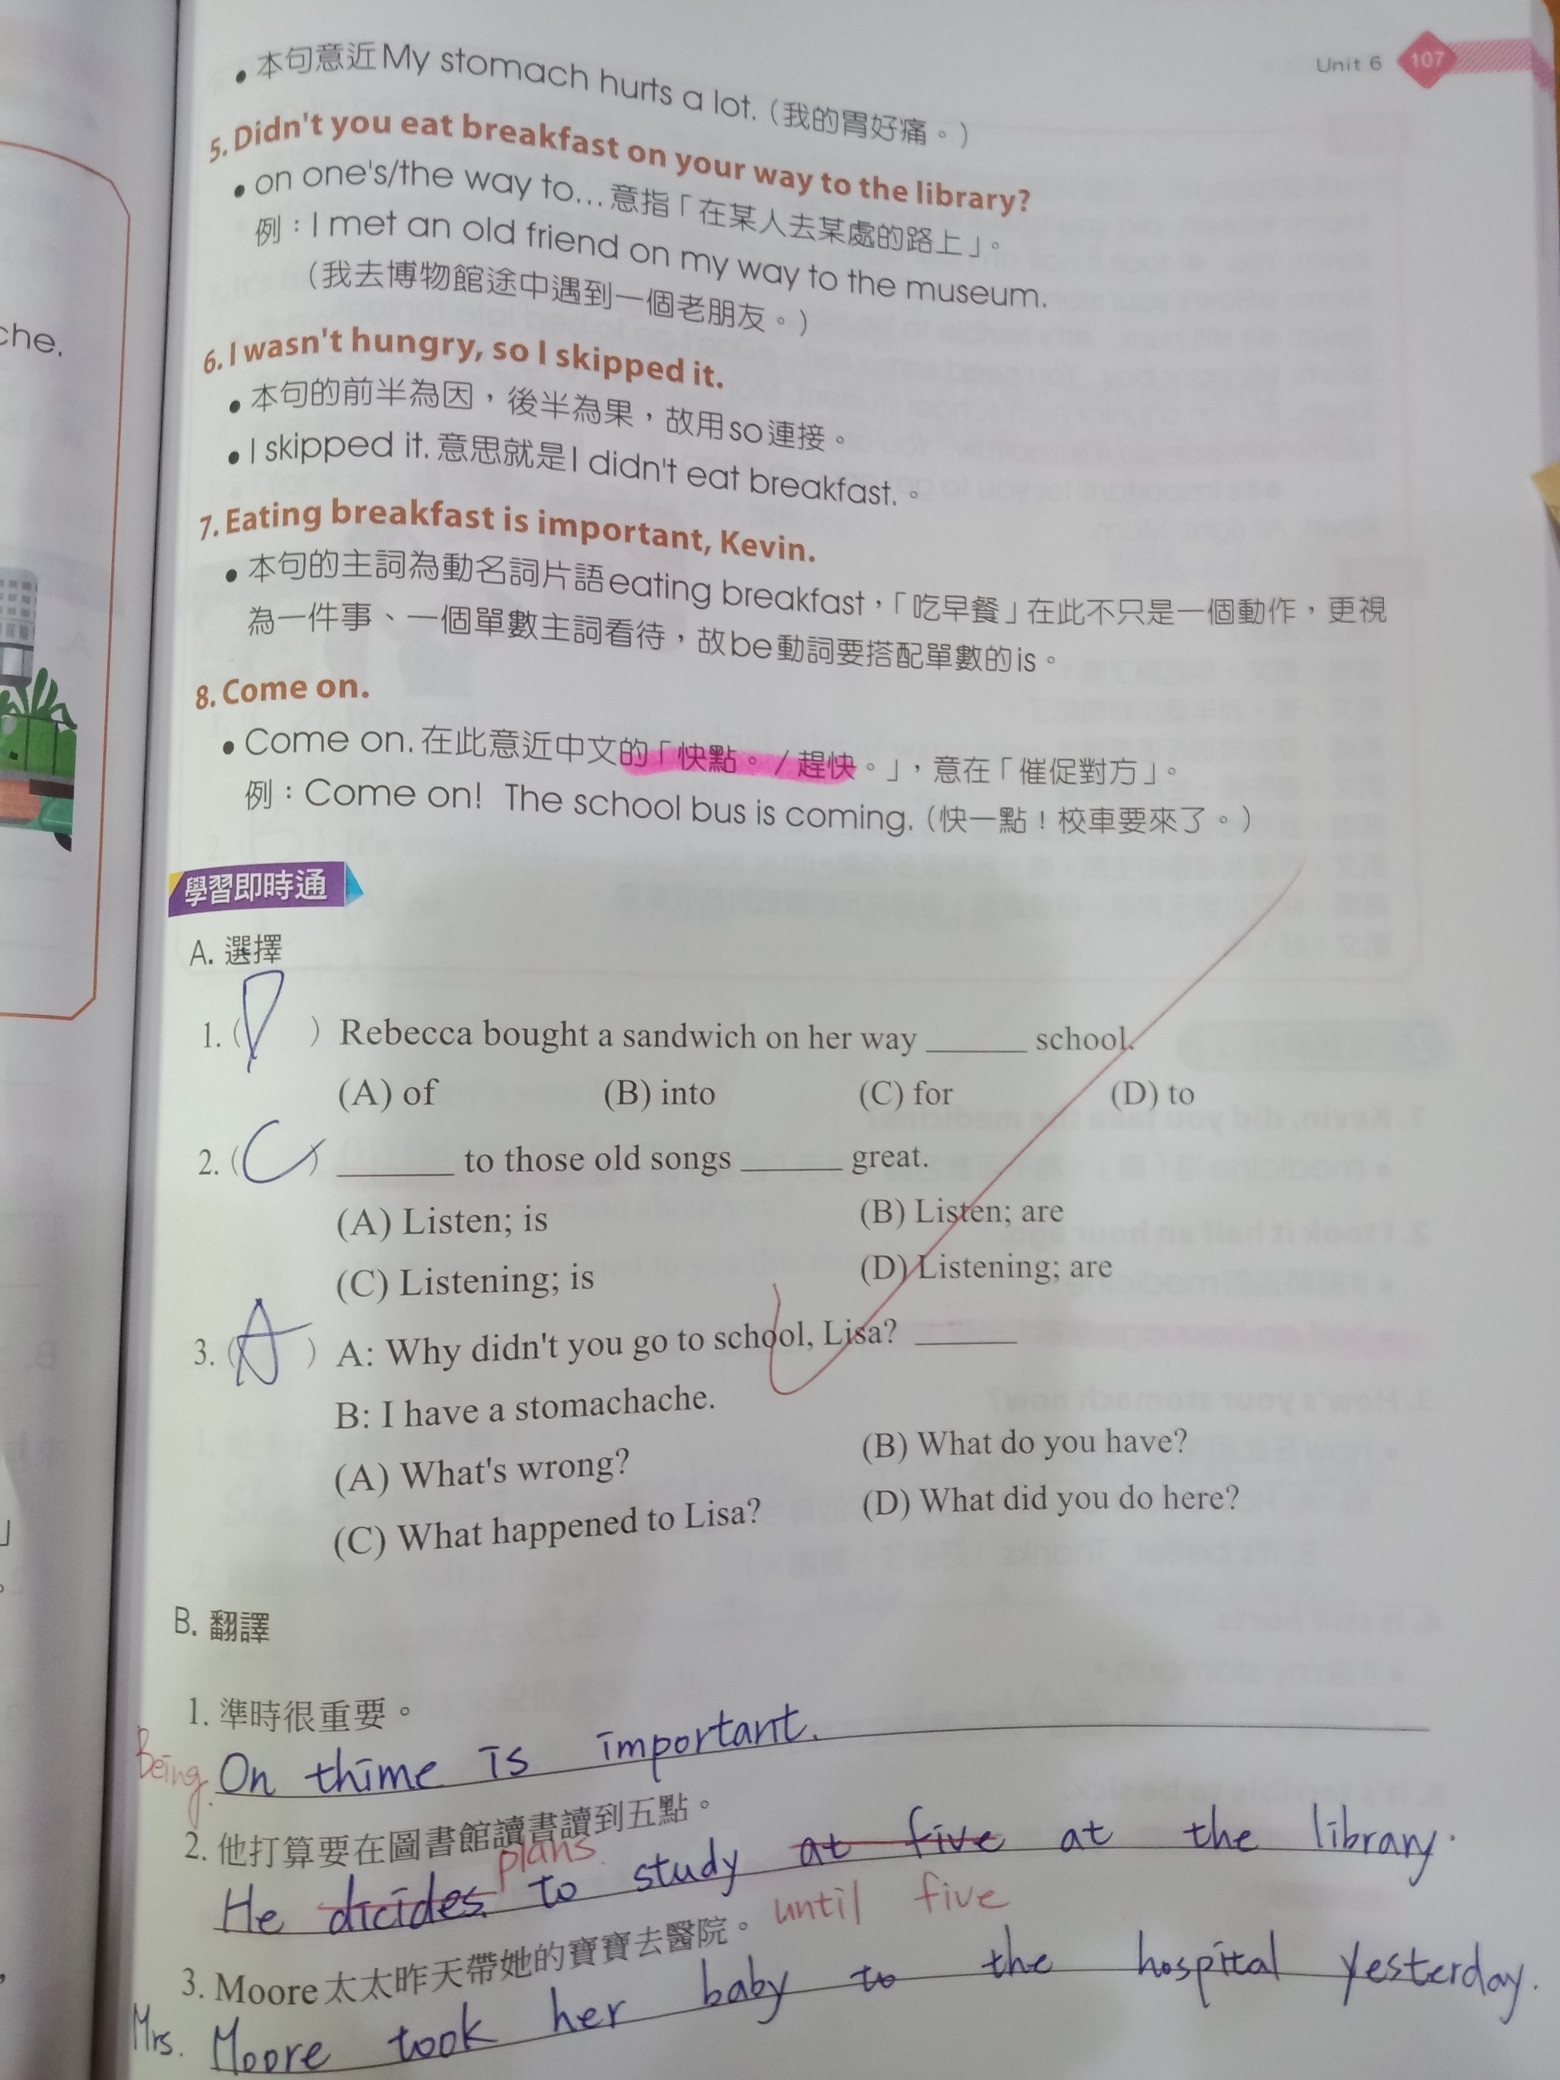 Unit 6 107
•本句意近My stomach hurts a lot.（我的胃好痛。）
5. Didn't you eat breakfast on your way to the library?
•on one's/the way to...意指「在某人去某處的路上」。
例：I met an old friend on my way to the museum.
（我去博物館途中遇到一個老朋友。）
che.
6. I wasn't hungry, so I skipped it.
•本句的前半為因，後半為果，故用so連接。
•I skipped it.意思就是I didn't eat breakfast.。
7. Eating breakfast is important, Kevin.
•本句的主詞為動名詞片語eating breakfast，「吃早餐」在此不只是一個動作，更視
為一件事、一個單數主詞看待，故be動詞要搭配單數的is。
8. Come on.
•Come on.在此意近中文的「快點。/趕快。」，意在「催促對方」。
例：Come on! The school bus is coming.（快一點！校車要來了。）
學習即時通
A. 選擇
1. ( D ) Rebecca bought a sandwich on her way ______ school.
(A) of (B) into (C) for (D) to
2. ( C ) ______ to those old songs ______ great.
(A) Listen; is (B) Listen; are
(C) Listening; is (D) Listening; are
3. ( A ) A: Why didn't you go to school, Lisa? ______
B: I have a stomachache.
(A) What's wrong? (B) What do you have?
(C) What happened to Lisa? (D) What did you do here?
B. 翻譯
1. 準時很重要。
Being On thime is important.
2. 他打算要在圖書館讀書讀到五點。
plans
He dicides to study at five at the library.
until five
3. Moore太太昨天帶她的寶寶去醫院。
Mrs. Moore took her baby to the hospital yesterday.